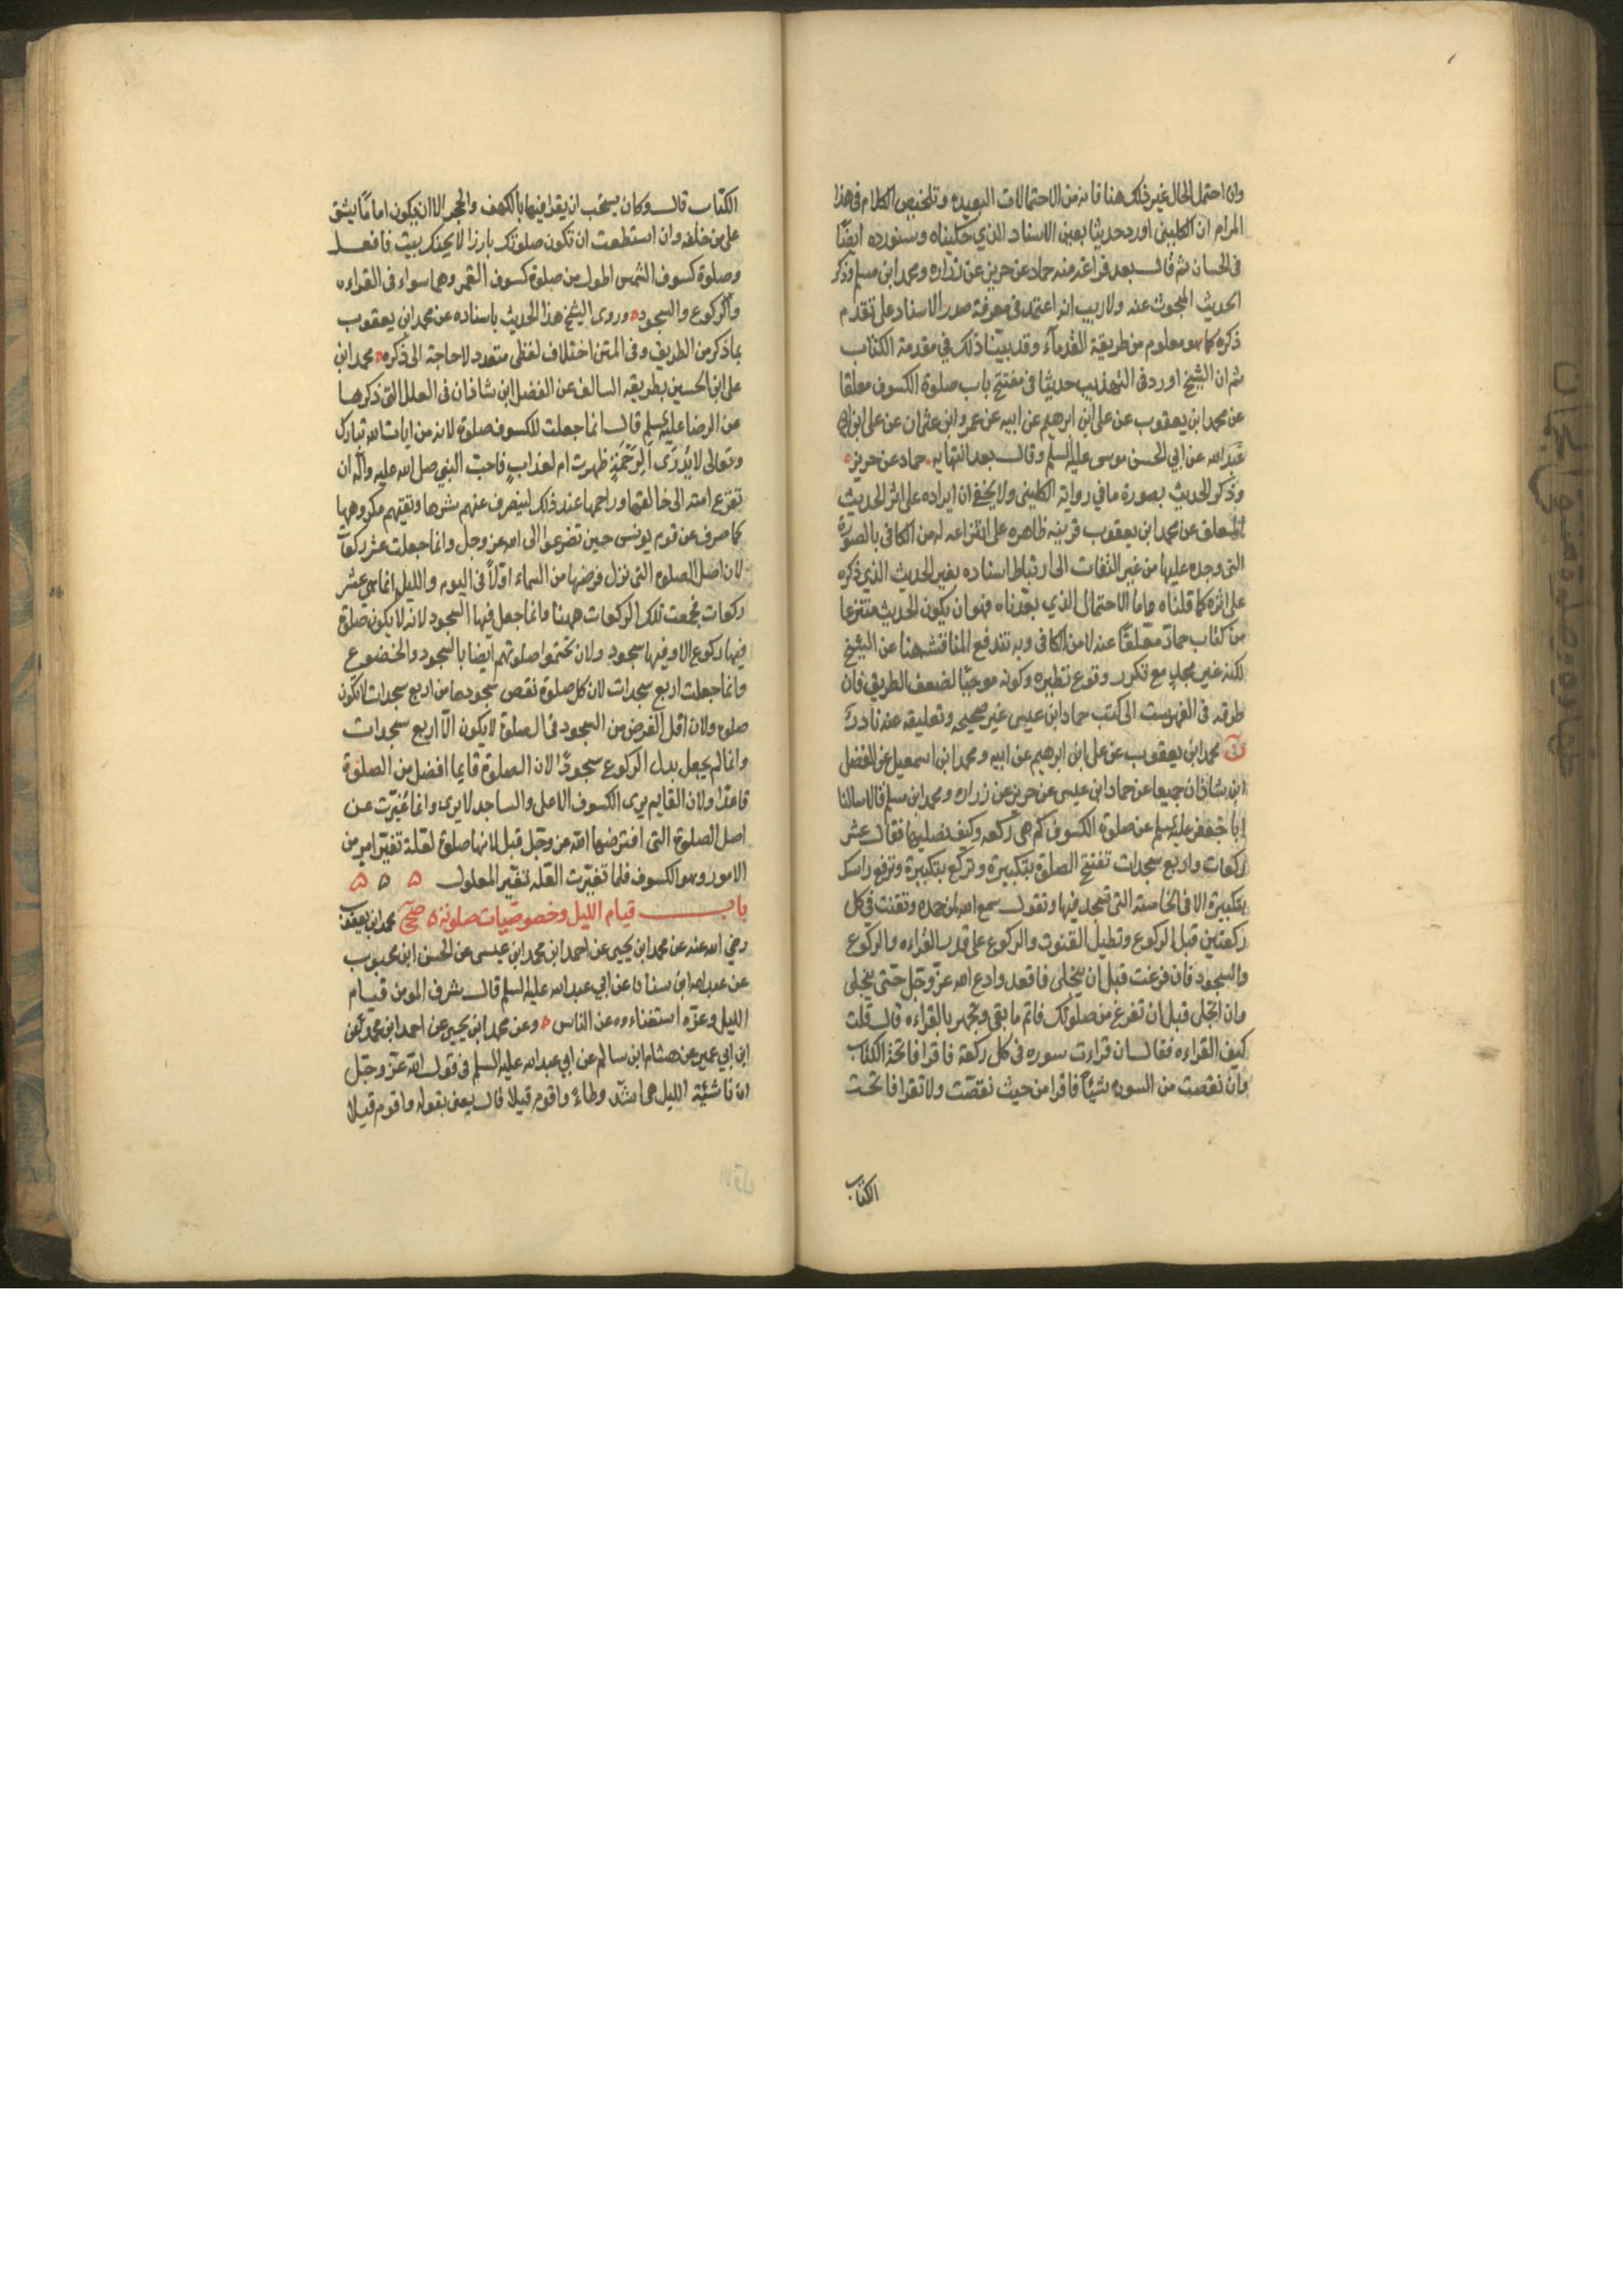 وان احتمل الحال غير ذلك هنا فانه من الاحتمالات البعيده وتلخيص الكلام فى هذا
المرام ان الكلينى اورد حديثا بعين الاسناد الذي حكيناه وسنورده ايضًا
فى الحسان ثم قال بعد فراغه منه حماد عن حريز عن زراره ومحمد ابن مسلم وذكر
الحديث المبحوث عنه ولا ريب انه اعتمد فى معرفة صدر الاسناد على تقدم
ذكره كما هو معلوم من طريقة القدمآء وقد بيّنا ذلك في مقدمة الكتاب
ثم ان الشيخ اورد فى التهذيب حديثا فى مفتتح باب صلوة الكسوف معلقا
عن محمد ابن يعقوب عن على ابن ابرهيم عن ابيه عن عمرو ابن عثمان عن على ابن
عبد الله عن ابي الحسن موسى عليه السلم وقال بعد انتهائه حماد عن حريز
وذكر الحديث بصورة ما في رواية الكلينى ولا يخفى ان ايراده على اثر الحديث
المعلق عن محمد ابن يعقوب قرينه ظاهره على انتزاعه له من الكافى بالصورة
التى وجده عليها من غير التفات الى ارتباط اسناده بغير الحديث الذي ذكره
على اثره كما قلناه واما الاحتمال الذي بعدناه فهو ان يكون الحديث منتزعا
من كتاب حماد معلقًا عنه لا من الكافى وبه تندفع المناقشه هنا عن الشيخ
لكنه غير مجد مع تكرر وقوع نظيره وكونه موجبًا لضعف الطريق فان
طرقه فى الفهرست الى كتب حماد ابن عيسى غير صحيحه وتعليقه عنه نادر
ن محمد ابن يعقوب عن على ابن ابرهيم عن ابيه ومحمد ابن اسمعيل عن الفضل
ابن شاذان جميعا عن حماد ابن عيسى عن حريز عن زراره ومحمد ابن مسلم قالا سالنا
ابا جعفر عليه السلم عن صلوة الكسوف كم هى ركعه وكيف نصليها فقال عشر
ركعات واربع سجدات تفتتح الصلوة بتكبيرة وتركع بتكبيرة وترفع راسك
بتكبيرة الا فى الخامسة التى تسجد فيها وتقول سمع الله لمن حمده وتقنت فى كل
ركعتين قبل الركوع وتطيل القنوت والركوع على قدر القراءه والركوع
والسجود فان فرغت قبل ان ينجلى فاقعد وادع الله عزّ وجلّ حتى ينجلى
وان انجلى قبل ان تفرغ من صلوتك فاتم ما بقى وتجهر بالقراءه قال قلت
كيف القراءه فقال ان قرات سوره فى كل ركعة فاقرا فاتحة الكتاب
وان نقصت من السوره شيئًا فاقرا من حيث نقصت ولا تقرا فاتحت
الكتاب
الكتاب قال وكان يستحب ان يقرا فيها بالكهف والحجر الا ان يكون اماما يشق
على من خلفه وان استطعت ان تكون صلوتك بارزا لا يجنك بيت فافعل
وصلوة كسوف الشمس اطول من صلوة كسوف القمر وهما سواء فى القراءه
والركوع والسجود وروى الشيخ هذا الحديث باسناده عن محمد ابن يعقوب
بما ذكر من الطريق وفى المتن اختلاف لفظى متعدد لا حاجة الى ذكره محمد ابن
على ابن الحسين بطريقه السالف عن الفضل ابن شاذان فى العلل التى ذكرها
عن الرضا عليه السلم قال انما جعلت للكسوف صلوة لانه من ايات الله تبارك
وتعالى لا يُدرَى ألِرَحْمَةٍ ظهرت ام لعذابٍ فاحب النبى صلى الله عليه وآله ان
تفزع امته الى خالقها وراحمها عند ذلك ليصرف عنهم شرها ويقيهم مكروهها
كما صرف عن قوم يونس حين تضرعوا الى الله عز وجل وانما جعلت عشر ركعات
لان اصل الصلوه التى نزل فرضها من السماء اولًا فى اليوم والليل انما هى عشر
ركعات فجمعت تلك الركعات ههنا وانما جعل فيها السجود لانه لا يكون صلوة
فيها ركوع الا وفيها سجود ولان يختموا صلوتهم ايضا بالسجود والخضوع
وانما جعلت اربع سجدات لان كل صلوة نقص سجودها من اربع سجدات لا تكون
صلوه ولان اقل الفرض من السجود فى الصلوة لا يكون الّا اربع سجدات
وانما لم يجعل بدل الركوع سجودًا لان الصلوة قايما افضل من الصلوة
قاعدًا ولان القايم يرى الكسوف الاعلى والساجد لا يرى وانما غيّرت عن
اصل الصلوة التى افترضها الله عز وجل قبل لانها صلوة لعلة تغيّر امر من
الامور وهو الكسوف فلما تغيّرت العله تغيّر المعلول ۵ ۵ ۵
باب قيام الليل وخصوصيات صلوته ۵ صحى محمد ابن يعقوب
رضي الله عنه عن محمد ابن يحيى عن احمد ابن محمد ابن عيسى عن الحسن ابن محبوب
عن عبد الله ابن سنان عن ابي عبد الله عليه السلم قال شرف المومن قيام
الليل وعزّه استغناءوه عن الناس وعن محمد ابن يحيى عن احمد ابن محمد عن
ابن ابي عمير عن هشام ابن سالم عن ابي عبد الله عليه السلم فى قول الله عزّ وجلّ
ان ناشئة الليل هى اشد وطاء واقوم قيلا قال يعنى بقوله واقوم قيلا